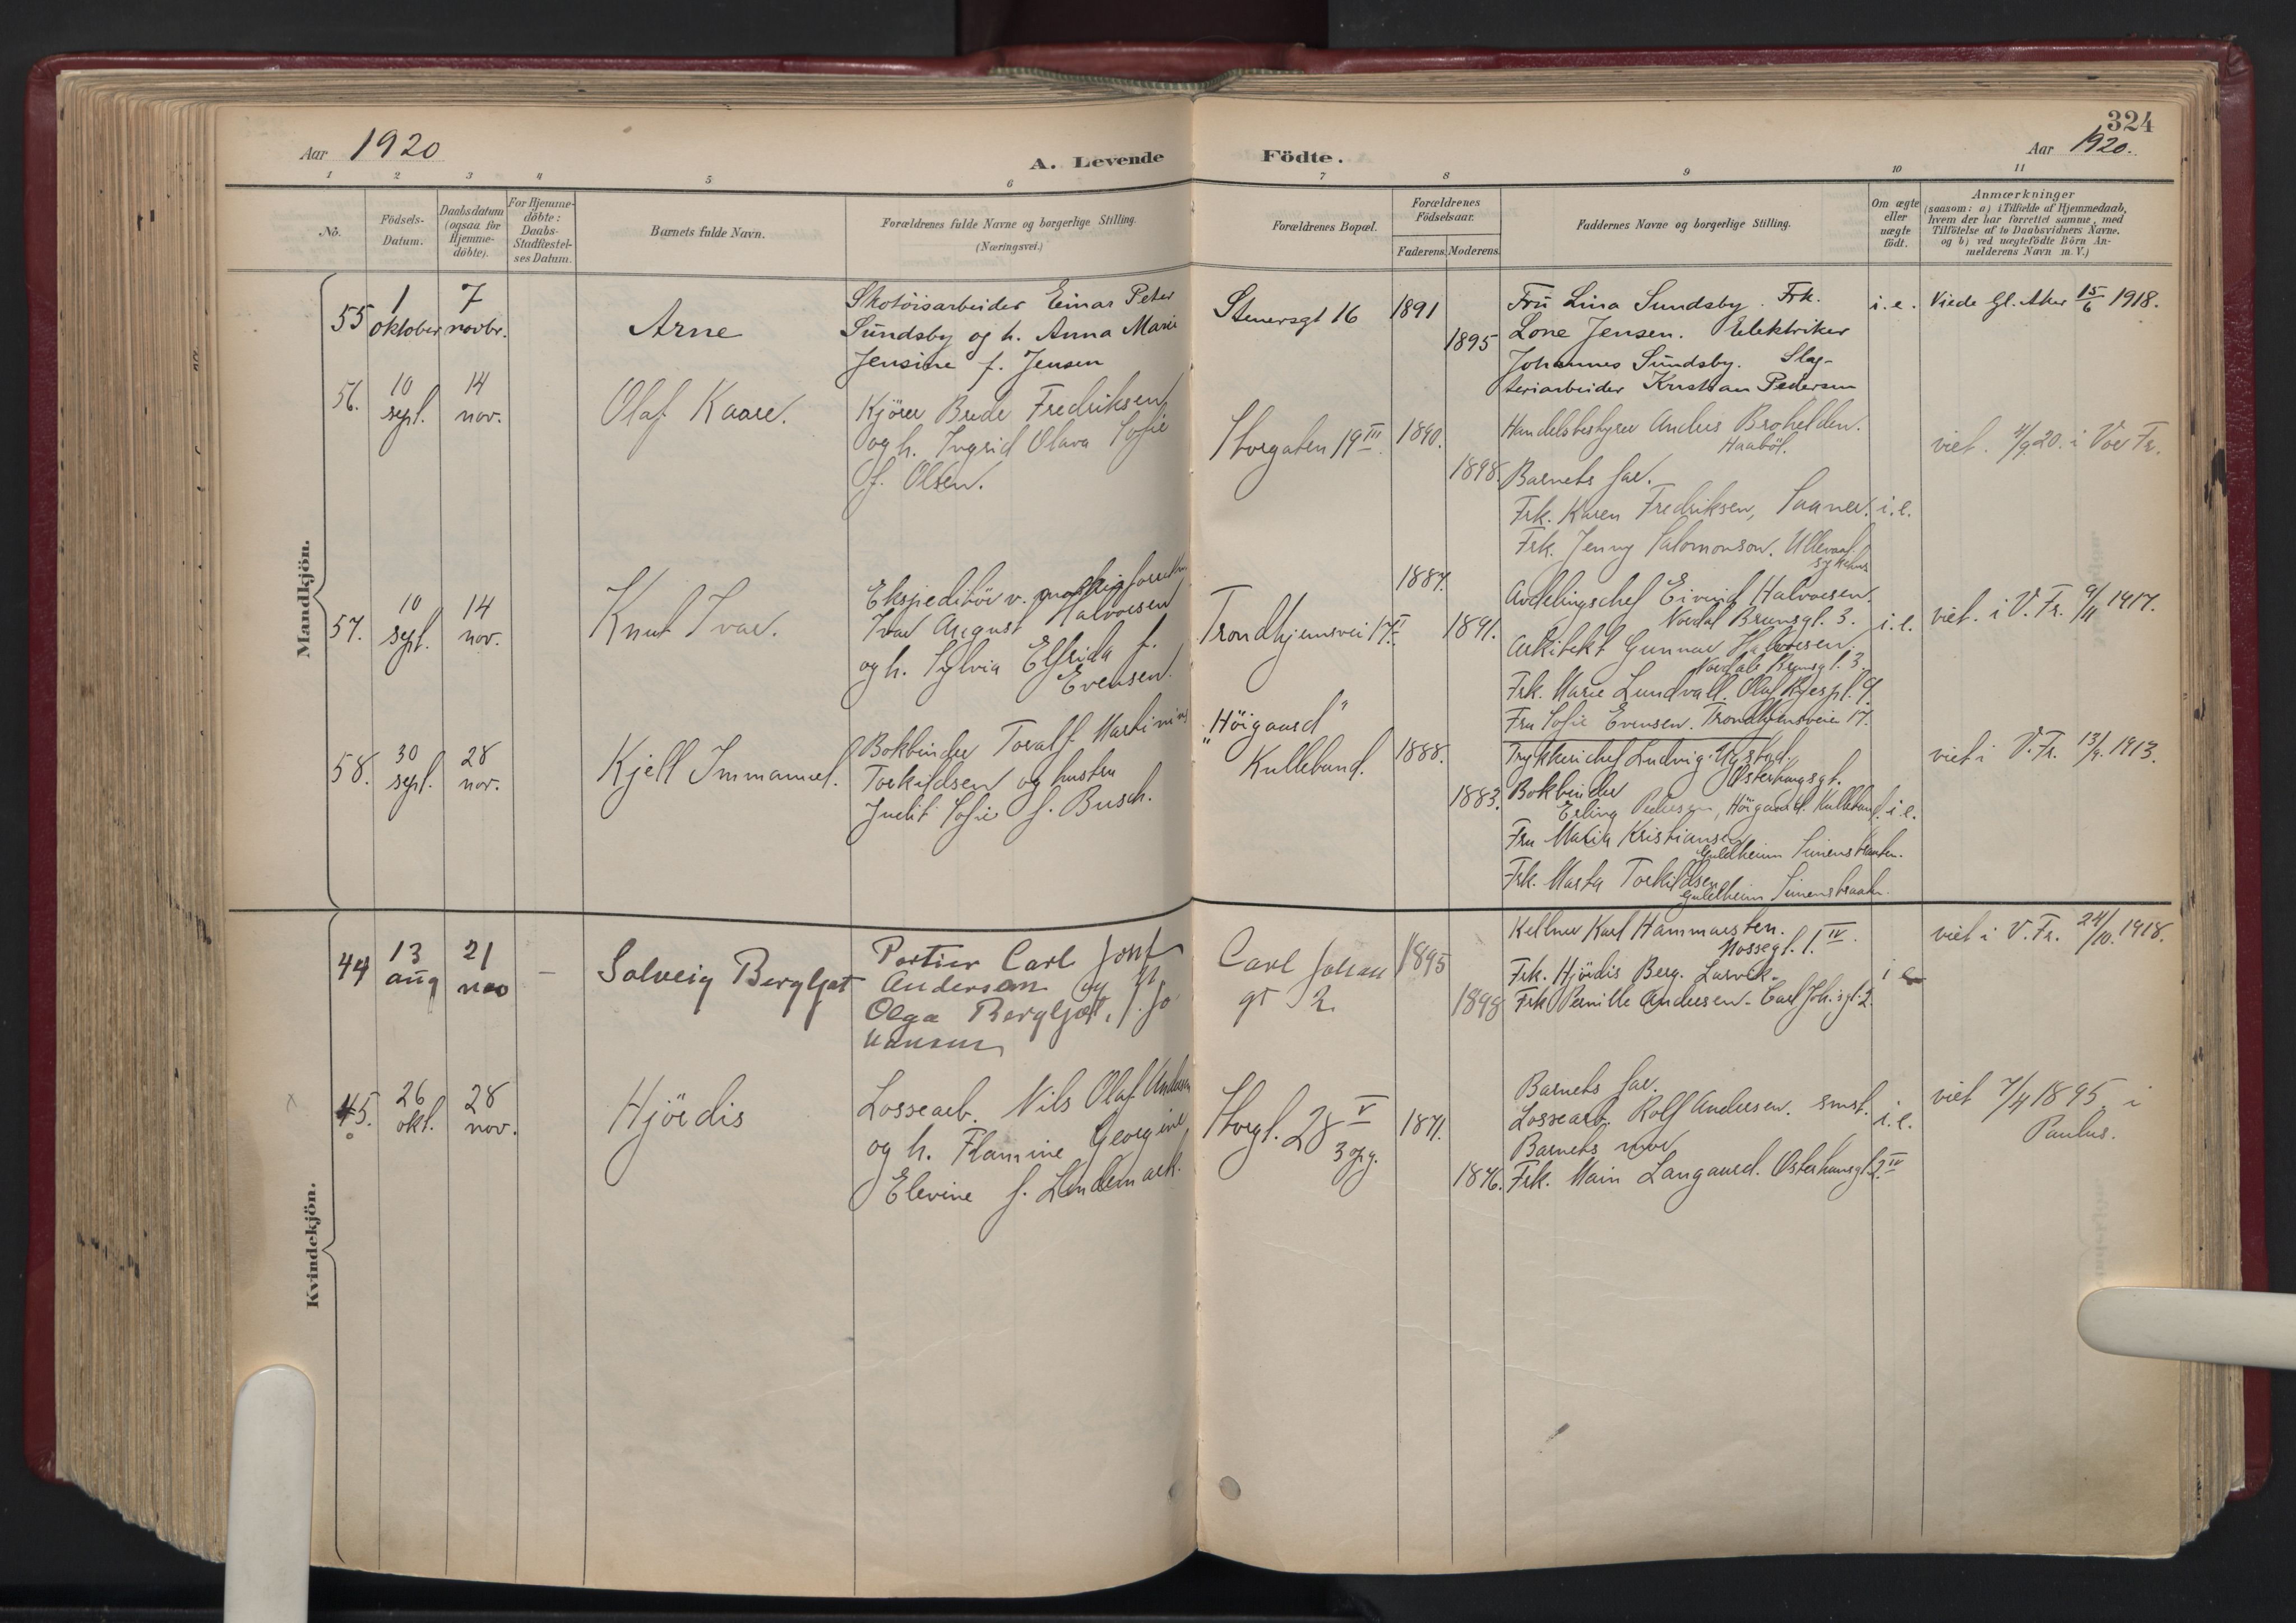 324
Aar 1920
A. Levende
Födte.
Aar 1920.
1 2 3 4 5 6 7 8 9 10 11
No.
Födsels-
Datum.
Daabsdatum
(ogsaa for
Hjemme-
döbte).
For Hjemme-
döbte:
Daabs-
Stadfæstel-
ses Datum.
Barnets fulde Navn.
Forældrenes fulde Navne og borgerlige Stilling.
(Næringsvei.)
Forældrenes Bopæl.
Forældrenes
Födselsaar.
Faderens. Moderens.
Faddernes Navne og borgerlige Stilling.
Om ægte
eller
uægte
födt.
Anmærkninger
(saasom: a) i Tilfælde af Hjemmedaab,
hvem der har forrettet samme, med
Tilföielse af to Daabsvidners Navne.
og b) ved uægtefödte Börn An-
melderens Navn m. V.)
Mandkjön.
55
1
oktober
7
novbr.
Arne
Skotöisarbeider Einar Peter
Sundsby og h. Anna Marie
Jensine f. Jensen
Stenersgt 16
1891
1895
Fru Lina Sundsby. Frk.
Lone Jensen. Elektriker
Johannes Sundsby. Slag-
teriarbeider Kristian Pedersen
i. e.
Viede Gl. Aker 15/6 1918.
56.
10
sept.
14
nov.
Olaf Kaare.
Kjörer Brede Fredriksen
og h. Ingrid Olava Sofie
f. Olsen.
Storgaten 19 III
1890.
1898.
Handelsbestyrer Anders Broholden.
Haaböl.
Barnets far.
Frk. Karen Fredriksen, Saaner.
Frk. Jenny Salomonson. Ullevaal
sykehus
i. e.
viet. 4/9 20. i Vor Fr.
57.
10
sept.
14
nov.
Knut Ivar.
Ekspeditör v.
Ivar August Halvorsen
og h. Sylvia Elfrida f.
Evensen.
Trondhjemsvei 17 I
1887.
1891.
Avdelingschef Eivind Halvorsen.
Nordal Brunsgt. 3.
Arkitekt Gunnar Halvorsen.
Nordale Brunsgt. 3.
Frk. Marie Lundvall. Olaf Ryespl. 9.
Fru Sofie Evensen. Trondhjemsveien 17.
i. e.
viet. i V. Fr. 9/11 1917.
58.
30
sept.
28
nov.
Kjell Immanuel.
Bokbinder Toralf Martinius
Torkildsen og hustru
Judit Sofie f. Busch.
"Höigaard"
Kullebund.
1888.
1883.
Trykkerichef Ludvig
Østerhausgt.
Bokbinder
Erling Pedersen, Höigaard Kullebund.
Fru Maria Kristiansen
Guldheim Simenstraaten.
Frk. Marta Torkildsen
Guldheim Simenstraaten.
i e.
viet i V. Fr. 13/9. 1913.
Kvindekjön.
44
13
aug
21
nov
—
Solveig Bergljot
Portier Carl Josef
Andersen og H.
Olga Bergljot, f. Jo
hansen
Carl Johan
gt 2.
1895
1898
Kellner Karl Hammarsten.
Mossegt. 1. IV.
Frk. Hjördis Berg. Larvik.
Frk Pernille Andersen. Carl Joh.sgt. 2.
i e
viet i V. Fr. 24/10. 1918.
45.
26
okt.
28
nov.
Hjördis
Lossearb. Nils Olaf Andersen
og h. Flamine Georgine
Elevine f. Lindemark.
Storgt. 28 V
3 opg.
1871.
1876.
Barnets far.
Lossearb. Rolf Andersen. smst.
Barnets mor
Frk. Main Langaard. Østerhausgt. 2 IV
i. e.
viet 7/4 1895 i
Paulus.